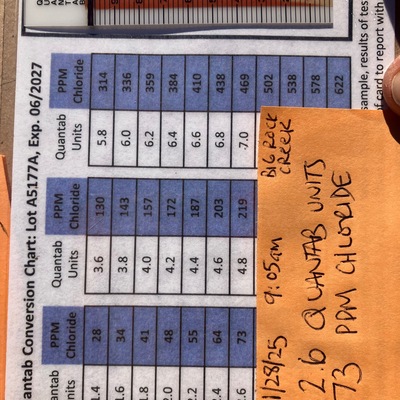 antab Conversion Chart: Lot A5177A, Exp. 06/2027
PPM Chloride Quantab Units PPM Chloride Quantab Units PPM Chloride
1.4 28 3.6 130 5.8 314
1.6 34 3.8 143 6.0 336
1.8 41 4.0 157 6.2 359
2.0 48 4.2 172 6.4 384
2.2 55 4.4 187 6.6 410
2.4 64 4.6 203 6.8 438
2.6 73 4.8 219 7.0 469
502
538
578
622
sample, results of tes
if card to report with
1/28/25 9:05am BIG ROCK CREEK
2.6 QUANTAB UNITS
73 PPM CHLORIDE